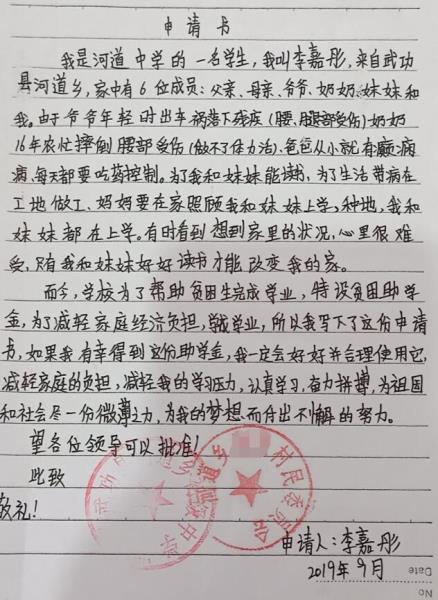 申请书
我是河道中学的一名学生,我叫李嘉彤,来自武功
县河道乡,家中有6位成员:父亲、母亲、爷爷、奶奶、妹妹和
我。由于爷爷年轻时出车祸落下残疾(腰、腿部受伤)奶奶
16年农忙摔倒腰部受伤(做不了体力活)、爸爸从小就有癫痫
病、每天都要吃药控制。为了我和妹妹能读书、为了生活带病在
工地做工、妈妈要在家照顾我和妹妹上学,种地,我和
妹妹都在上学。有时看到想到家里的状况,心里很难
受,只有我和妹妹好好读书才能改变我的家。
而今,学校为了帮助贫困生完成学业,特设贫困助学
金,为了减轻家庭经济负担,学业,所以我写下了这份申请
书,如果我有幸得到这份助学金,我一定会好好并合理使用它,
减轻家庭的负担,减轻我的学习压力,认真学习,奋力拼搏,为祖国
和社会尽一份微薄之力,为我的梦想而付出不懈的努力。
望各位领导可以批准!
此致
敬礼!
河道乡
村民委员会
中学
申请人:李嘉彤
2019年9月
Date
No